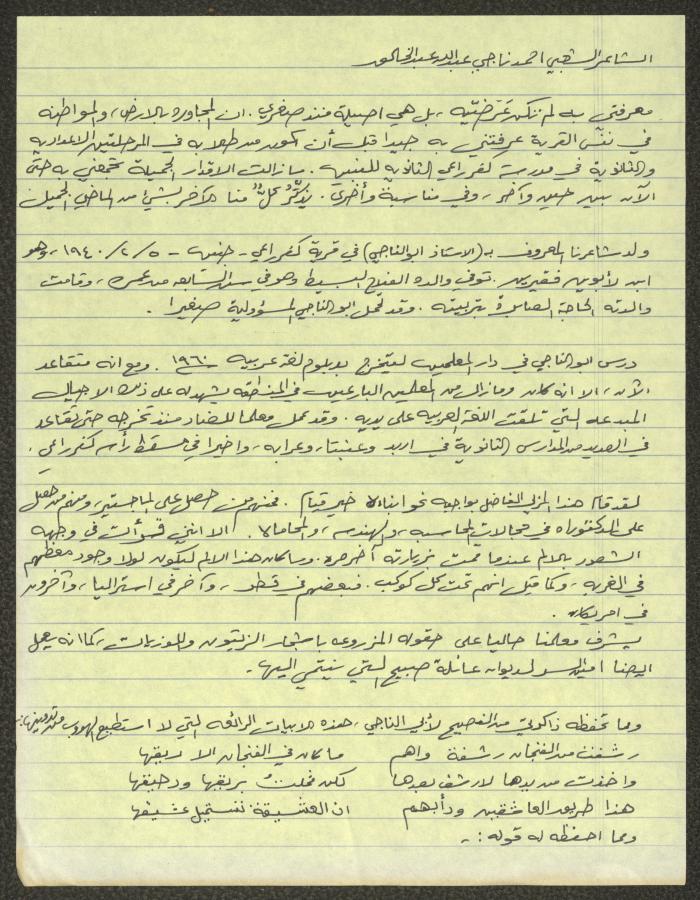 الشاعر الشعبي احمد ناجي عبدالله عبدالخالق
معرفتي به لم تكن عَرَضيّه، بل هي اصيلة منذ صغري. ان المجاوره بالارض، والمواطنه
في نفس القرية عرفتني به جيدا قبل أن اكون من طلابه في المرحلتين الاعداديه
والثانوية في مدرسة كفر راعي الثانويه للبنين. ما زالت الاقدار الجميلة تجمعني به حتى
الآن بين حين وآخر، وفي مناسبة وأخرى. يُذكِّرُ كلٌّ منا الآخر بشيئ من الماضي الجميل
ولد شاعرنا المعروف بـ (الاستاذ ابو الناجي) في قرية كفر راعي - جنين - ٥ /٢ /١٩٤٠، وهو
ابن لأبوين فقيرين. توفي والده الفلاح البسيط وهو في سن السابعه من عمره، وقامت
والدته الحاجة الصابرة بتربيته. وقد تحمل ابو الناجي المسؤولية صغيرا.
درس ابو الناجي في دار المعلمين ليتخرج بدبلوم لغة عربيه ١٩٦٠. ومع انه متقاعد
الآن، الا انه كان وما زال من المعلمين البارعين في المنطقه يشهد له على ذلك الاجيال
المبدعه التي تلقت اللغة العربيه على يديه. وقد عمل معلما للضاد منذ تخرجه حتى تقاعد
في العديد من المدارس الثانوية في اربد وعنبتا، وعرابه، واخيرا في مسقط رأسه كفر راعي.
لقد قام هذا المربي الفاضل بواجبه نحو ابنائه خير قيام. فمنهم من حصل على الماجستير، ومنهم من حصل
على الدكتوراه في مجالات المحاسبه، والهندسه، والمحاماه. الا انني قرأت في وجهه
الشعور بالالم عندما قمت بزيارته آخر مره. وما كان هذا الالم ليكون لولا وجود معظمهم
في الغربه، وكما قيل انهم تحت كل كوكب. فبعضهم في قطر، وآخر في استراليا، وآخرون
في امريكا.
يشرف معلمنا حاليا على حقوله المزروعه باشجار الزيتون واللوزيات، كما انه يعمل
ايضا امين السر لديوان عائلة صبيح التي ينتمي اليها.
ومما تحفظه ذاكرتي من الفصيح لأبي الناجي، هذه الابيات الرائعه التي لا استطيع الهروب من تدوينها:
رشفت من الفنجان رشفة واهم ما كان في الفنجان الا ريقها
واخذت من يدها لارشف بعدها لكن ثملت بريقها ورحيقها
هذا طريق العاشقين ودأبهم ان العشيقة تستميل عشيقها
ومما احفظه له قوله : -